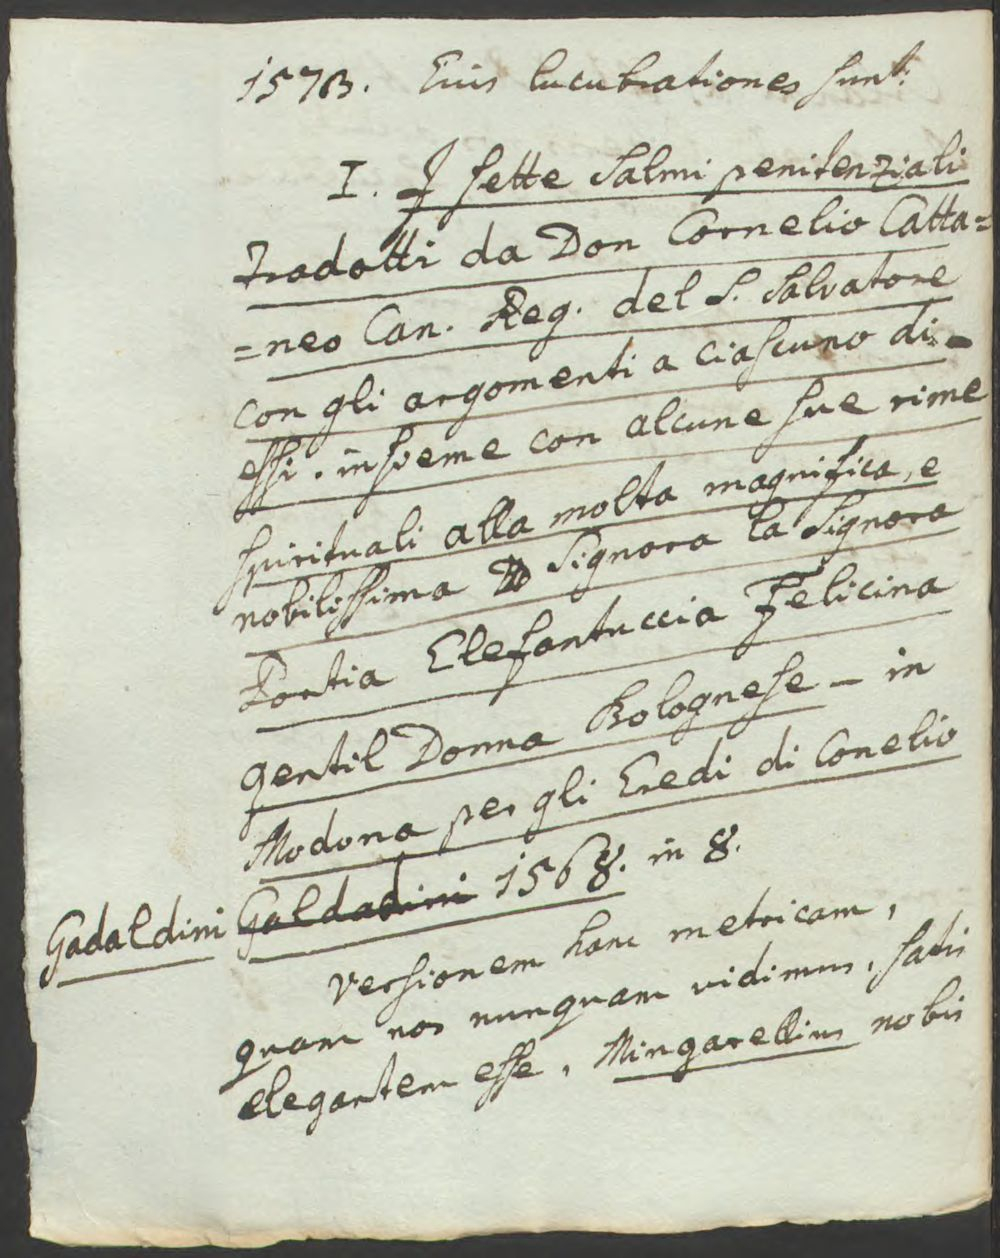 1573. Eius lucubrationes sunt:
I. I sette Salmi penitenziali
tradotti da Don Cornelio Catta=
=neo Can. Reg. del S. Salvatore
con gli argomenti a ciascuno di
essi. insieme con alcune sue rime
spirituali alla molta magnifica, e
nobilissima Signora la Signora
Portia Elefantuccia Felicina
gentil Donna Bolognese - in
Modona per gli Eredi di Conelio
Gadaldini Galdadini 1568. in 8.
Versionem hanc metricam,
quam nos nunquam vidimus, satis
elegantem esse, Mingarellius nobis